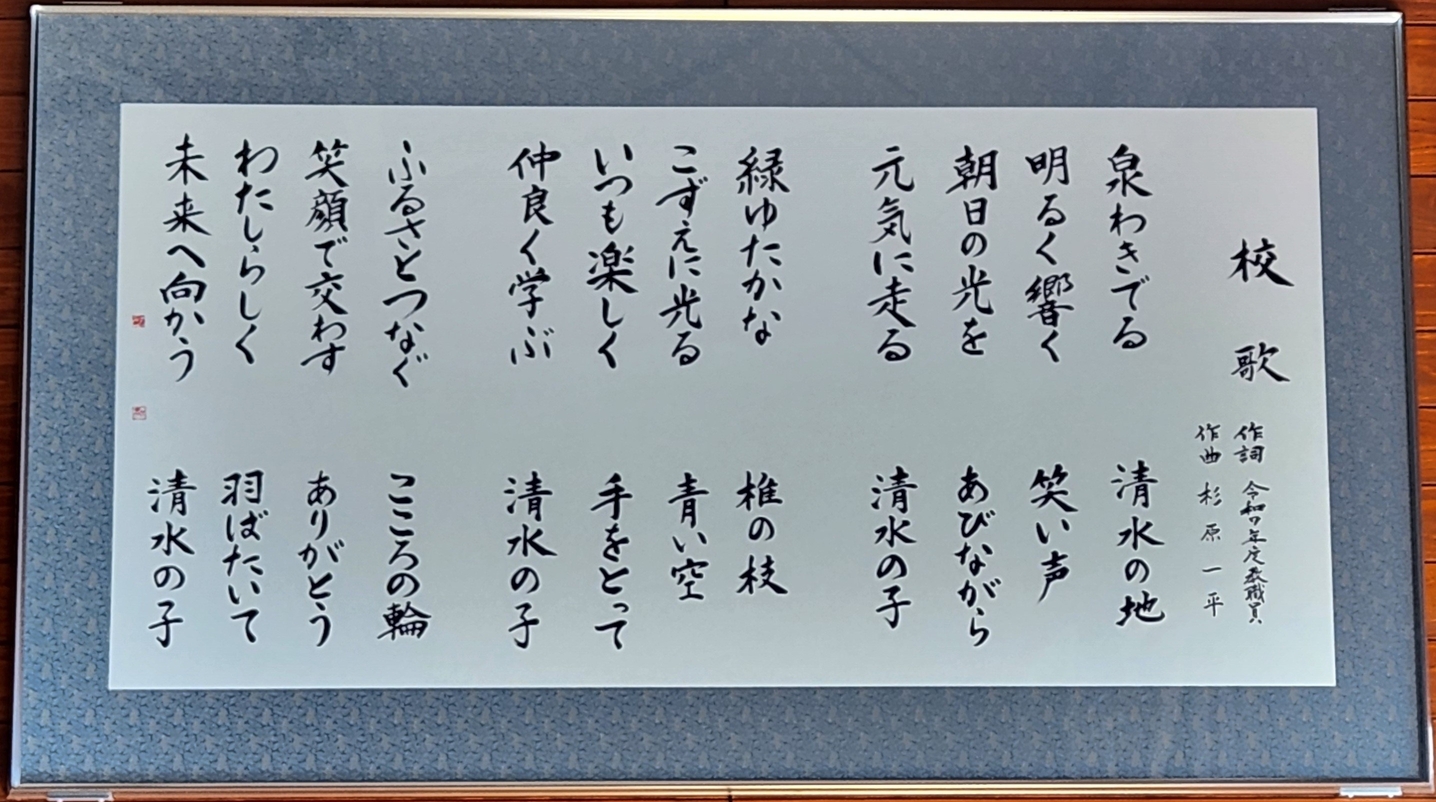 校歌
作詞 令和四年度教職員
作曲 杉原一平
泉わきでる 清水の地
明るく響く 笑い声
朝日の光を あびながら
元気に走る 清水の子
緑ゆたかな 椎の枝
こずえに光る 青い空
いつも楽しく 手をとって
仲良く学ぶ 清水の子
ふるさとつなぐ こころの輪
笑顔で交わす ありがとう
わたしらしく 羽ばたいて
未来へ向かう 清水の子